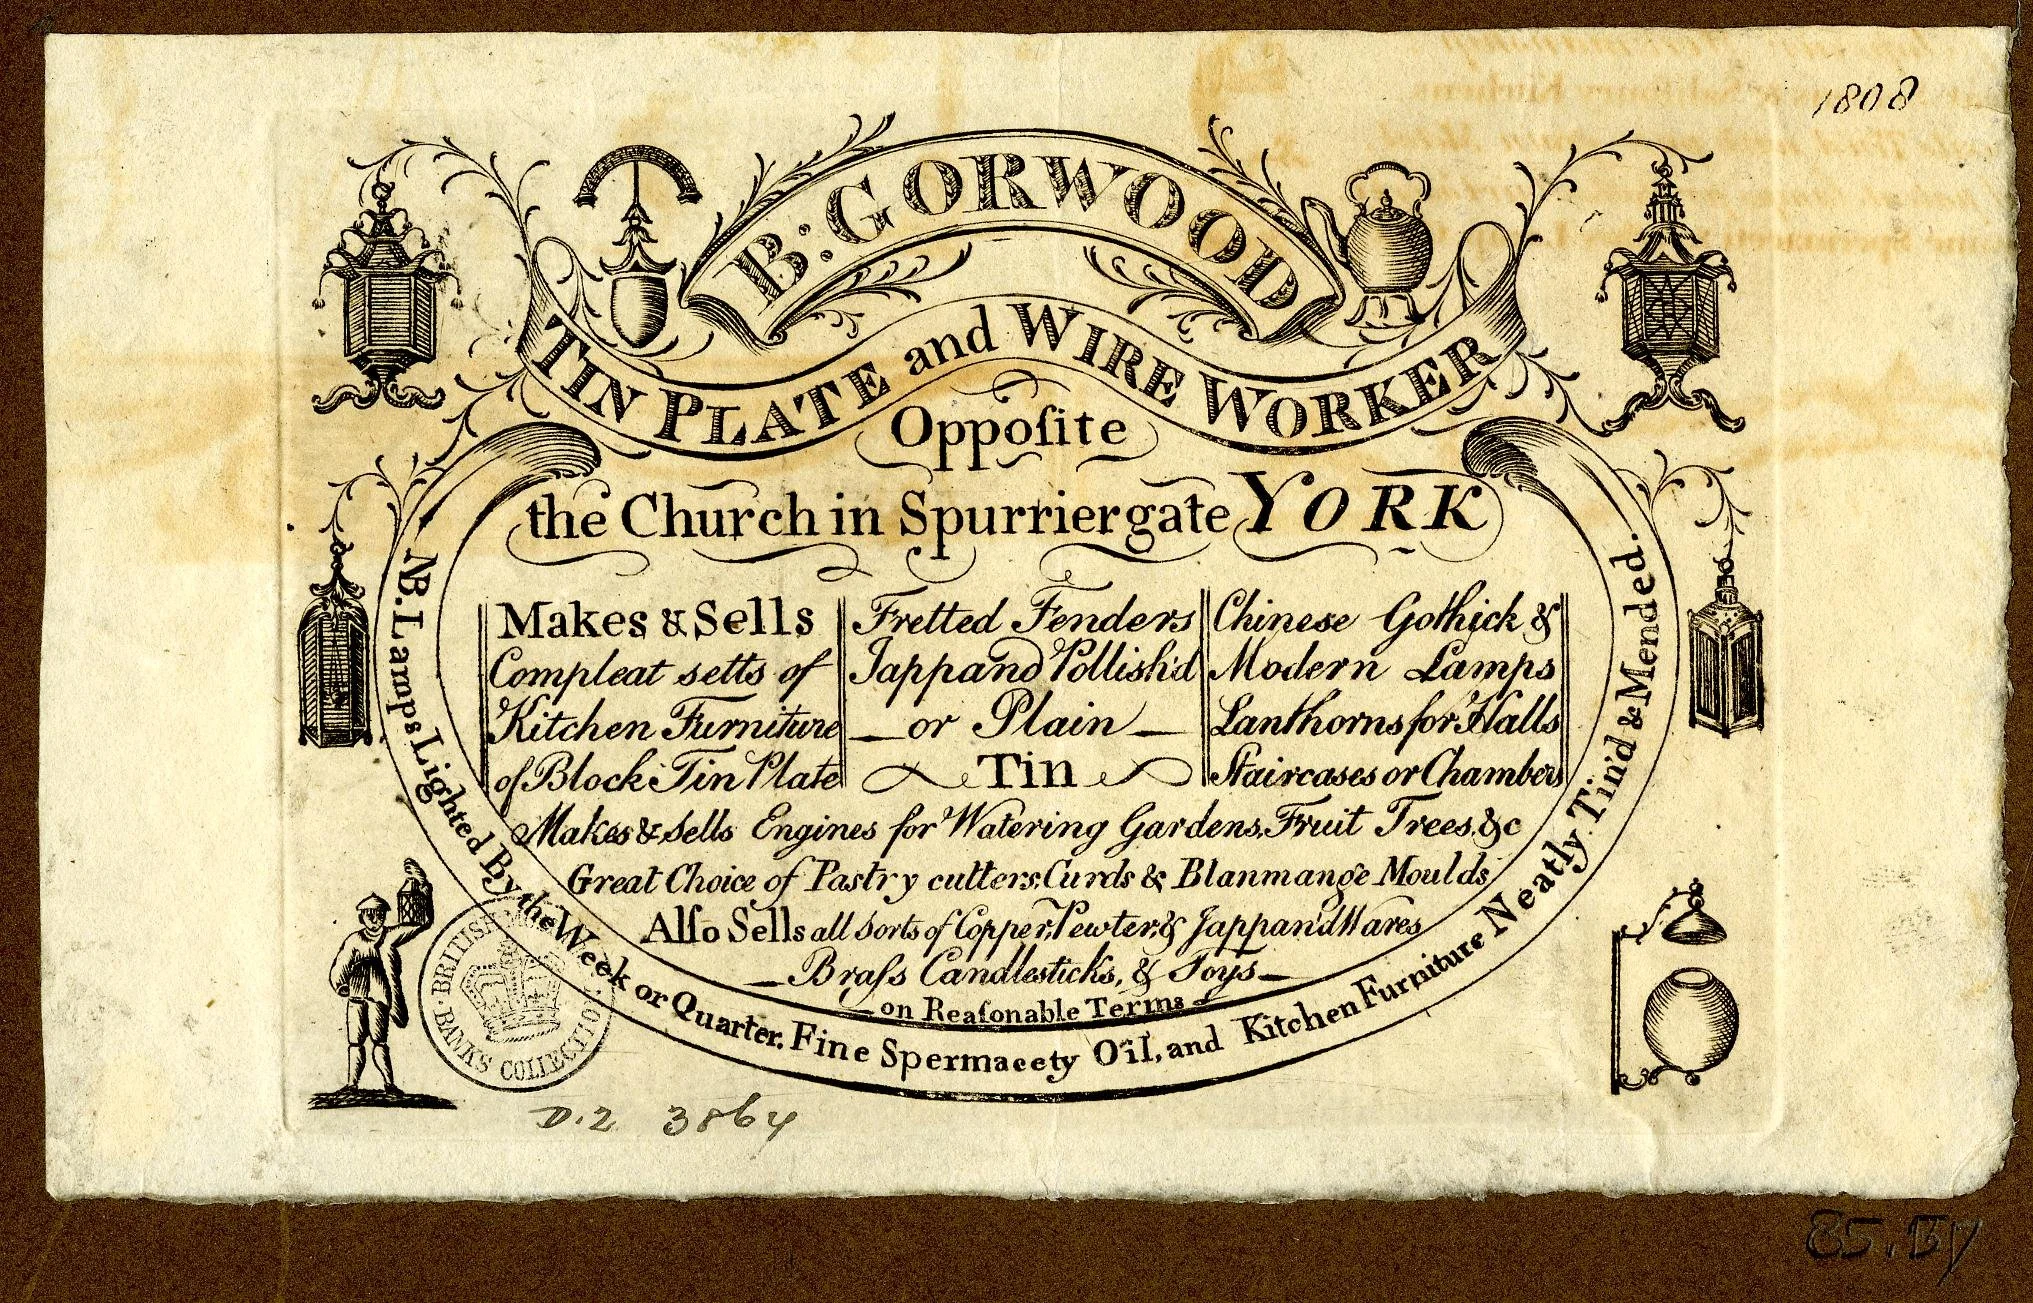 1808
B: GORWOOD
TIN PLATE and WIRE WORKER
Oppoſite
the Church in Spurriergate YORK
Makes & Sells
Compleat setts of
Kitchen Furniture
of Block Tin Plate
Fretted Fenders
Jappand Pollish'd
— or Plain —
Tin
Chinese Gothick &
Modern Lamps
Lanthorns for Halls
Staircases or Chambers
Makes & Sells Engines for Watering Gardens, Fruit Trees, &c
Great Choice of Pastry cutters, Curds & Blanmange Moulds
Alſo Sells all Sorts of Copper, Pewter, & Jappand Wares
— Braſs Candlesticks, & Toys —
— on Reaſonable Terms —
NB. Lamps Lighted By the Week or Quarter. Fine Spermacety Oil, and Kitchen Furniture Neatly Tin'd & Mended.
BRITISH
BANKS COLLECTION
D.2 3864